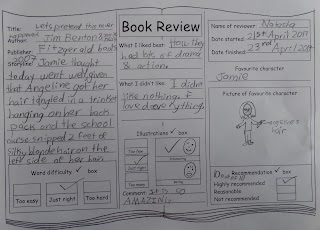 Book Review
Title: Lets pretend this never
happened
Author: Jim Benton
Publisher:
Fitzgerald books
2007
Storyline: Jamie thought
today went well given
that Angeline got her
hair tangled in a trinket
hanging on her back
pack and the school
nurse snipped 2 feet of
silky blonde hair on the
left side of her hair.
Word difficulty ✓ box
Too easy
Just right
Too hard
What I liked best: How they
had lots of drama
& action.
What I didn't like: I didn't
like nothing I
love d everything
Illustrations ✓ box
Too few
Just right
Too many
Boring
Comment: It is so
AMAZING
Name of reviewer: Natasha
Date started: 21st April 2017
Date finished: 23rd April 2017
Favourite character
Jamie
Picture of favourite character
Angeline's
hair
Recommendation ✓ box
Highly recommended
Reasonable
Not recommended